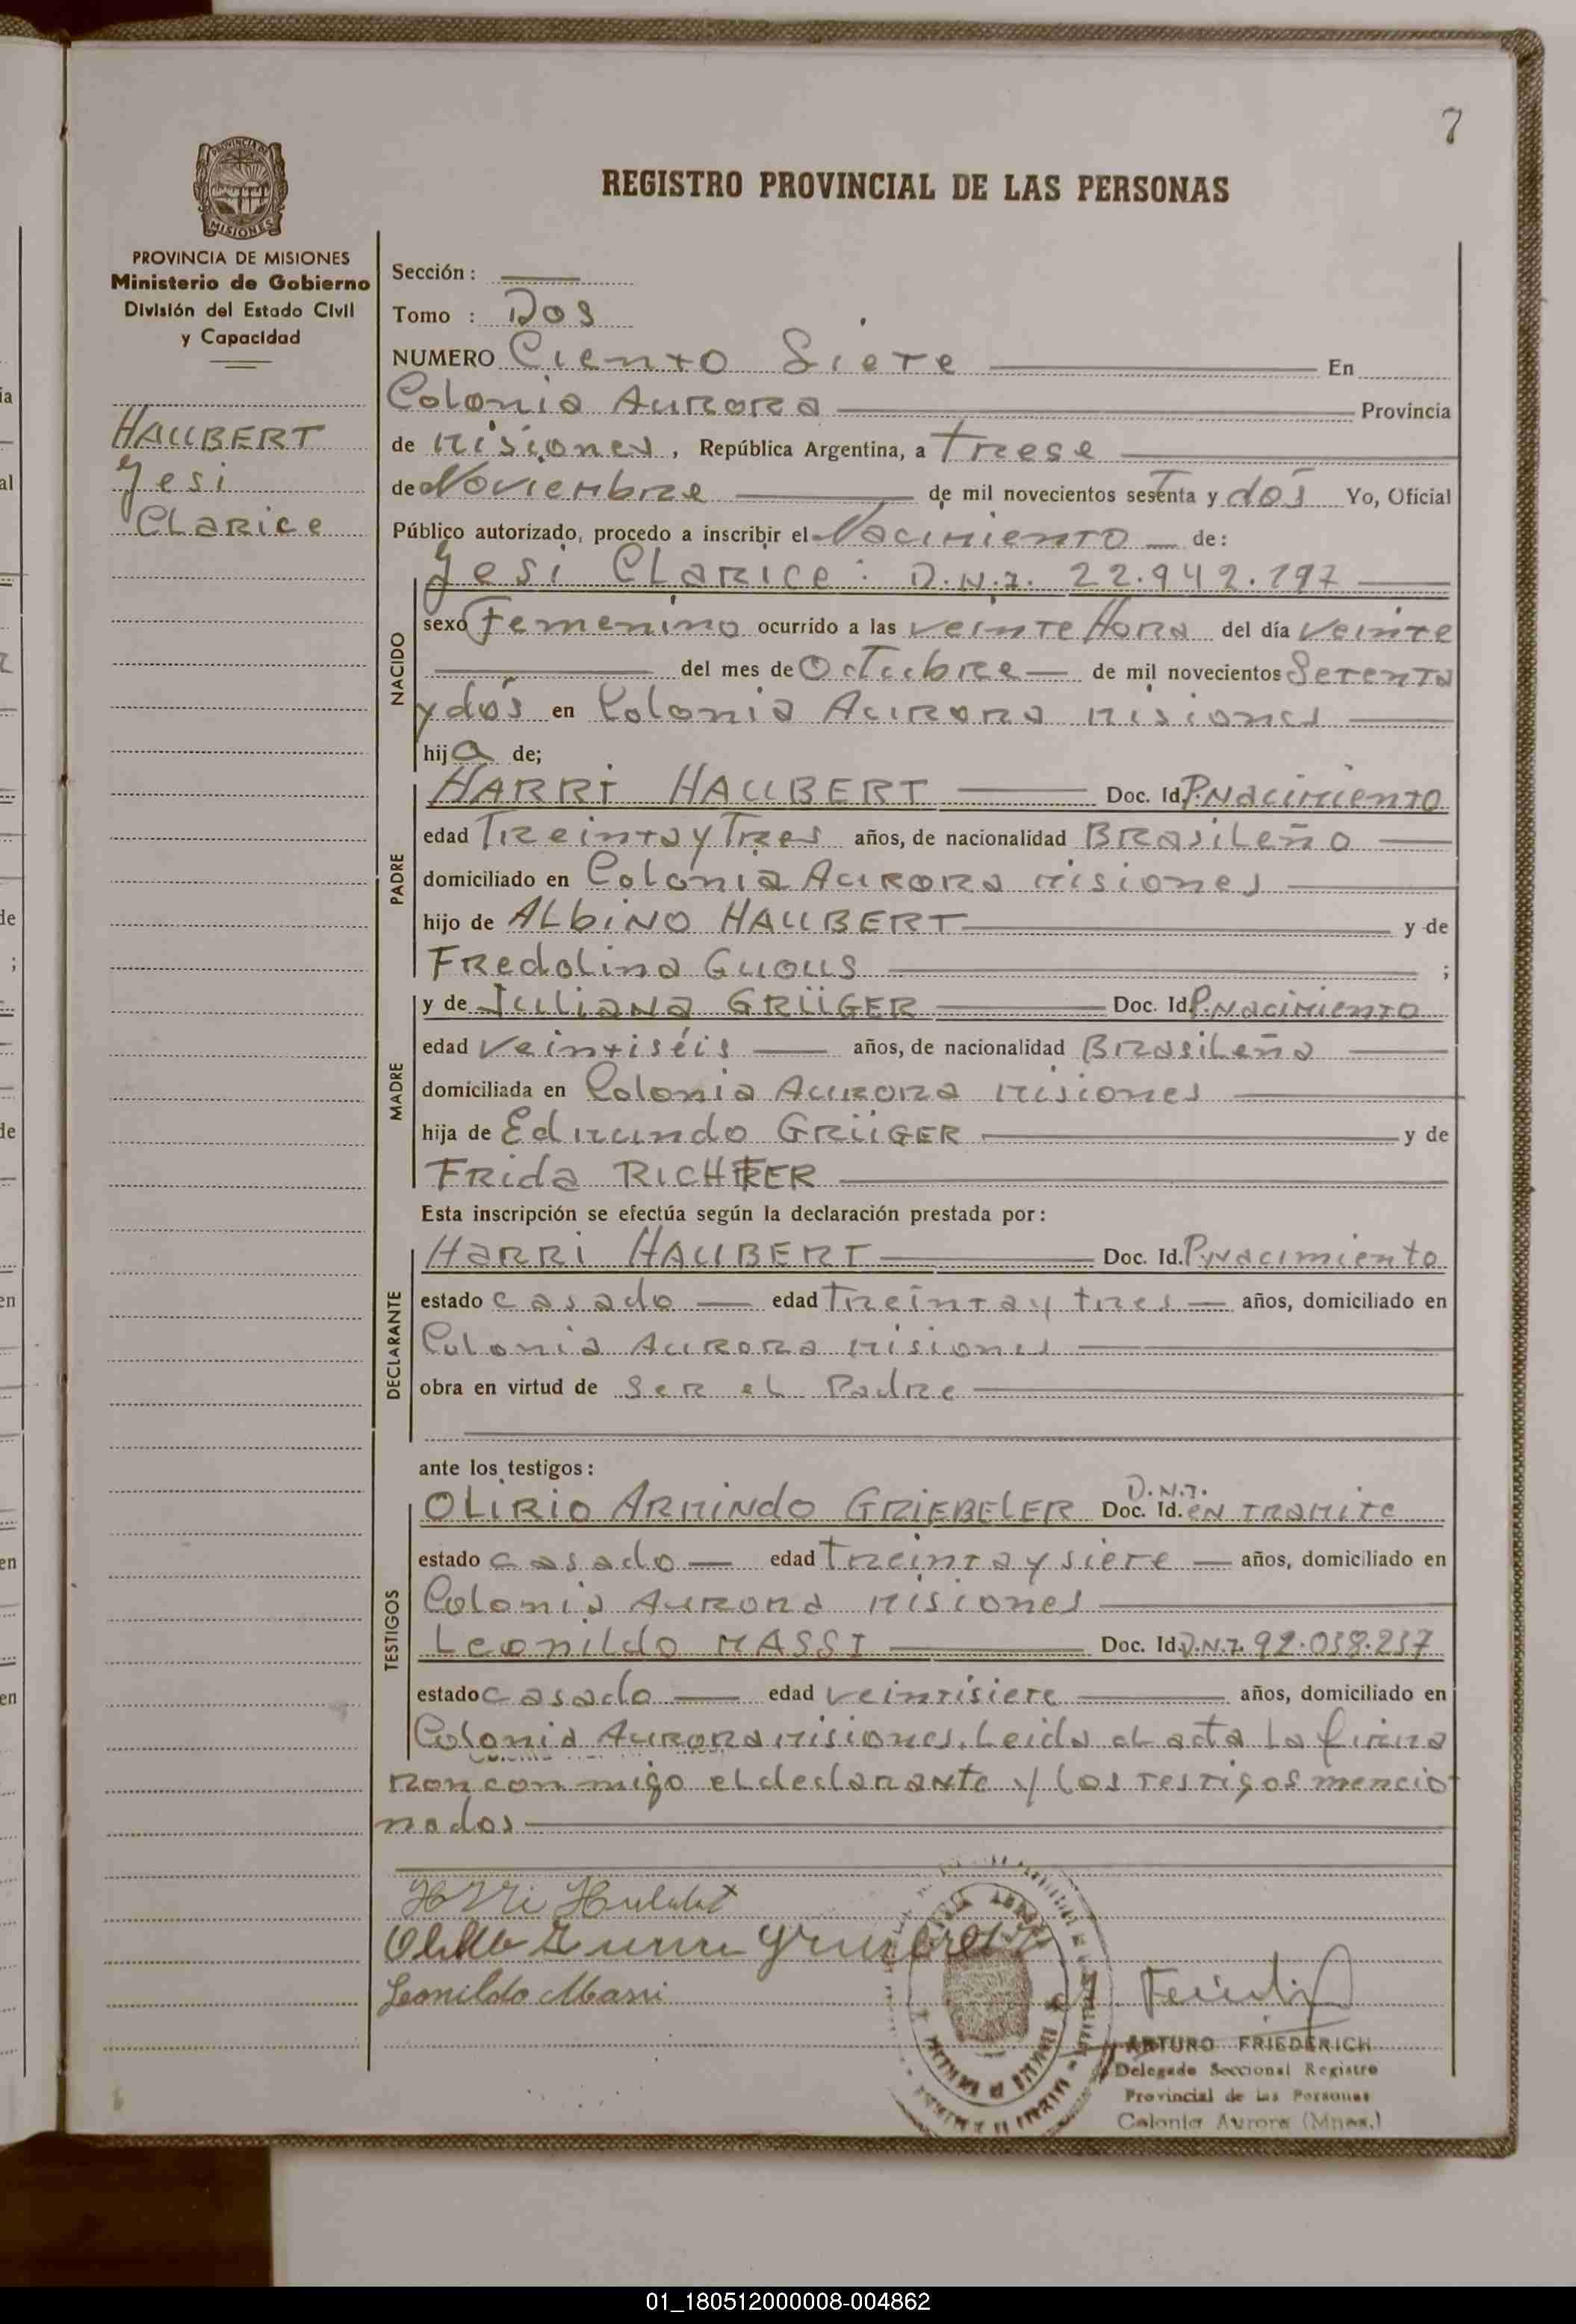 7
REGISTRO PROVINCIAL DE LAS PERSONAS
PROVINCIA DE MISIONES
Ministerio de Gobierno
División del Estado Civil
y Capacidad
HAUBERT
Yesi
CLARICE
Sección :
Tomo : Dos
NUMERO Ciento Siete En
Colonia Aurora Provincia
de Misiones, República Argentina, a trese
de Noviembre de mil novecientos setenta y dós Yo, Oficial
Público autorizado, procedo a inscribir el Nacimiento de:
NACIDO
Yesi CLARICE: D.N.I. 22.942.197
sexo Femenino ocurrido a las veinte Hora del día veinte
del mes de Octubre de mil novecientos Setenta
y dós en Colonia Aurora Misiones
hija de;
PADRE
HARRI HAUBERT Doc. Id. P. Nacimiento
edad Treinta y Tres años, de nacionalidad BRasiLeño
domiciliado en Colonia Aurora Misiones
hijo de ALbiNO HAUBERT y de
FRedolina Guous ;
MADRE
y de JuliaNa GRÜGER Doc. Id. P. Nacimiento
edad Veintiséis años, de nacionalidad BRasiLeña
domiciliada en Colonia Aurora Misiones
hija de Edmundo GRÜGER y de
FRida RICHTER
Esta inscripción se efectúa según la declaración prestada por:
DECLARANTE
HaRRi HAUBERT Doc. Id. P. Nacimiento
estado casado edad Treinta y tres años, domiciliado en
Colonia Aurora Misiones
obra en virtud de Ser el Padre
ante los testigos:
TESTIGOS
OLIRIO ARMINDO GRIEBELER Doc. Id. D.N.I. EN TRAMITE
estado casado edad treinta y siete años, domiciliado en
Colonia Aurora Misiones
Leonildo MASSI Doc. Id. D.N.I. 92.038.237
estado casado edad veintisiete años, domiciliado en
Colonia Aurora Misiones. Leida el acta La firma
ron conmigo el declarante y los testigos mencio
nados
Leonildo Massi
ARTURO FRIEDERICH
Delegado Seccional Registro
Provincial de las Personas
Colonia Aurora (Mnes.)
01_180512000008-004862